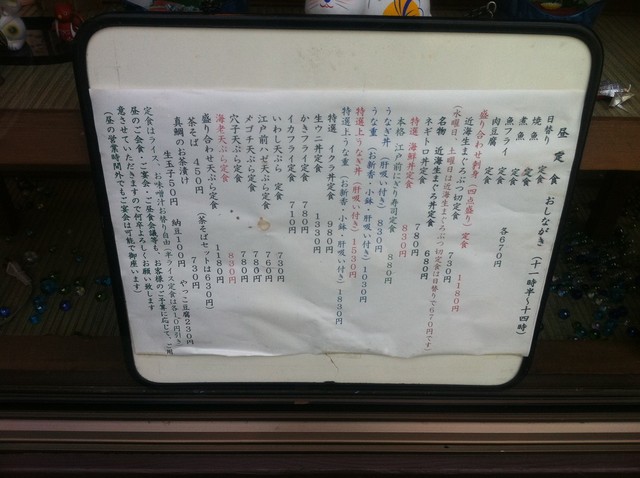 昼定食 おしながき（十一時半～十四時）
日替り 定食
焼魚 定食
煮魚 定食
魚フライ 定食
肉豆腐 定食 各670円
盛り合わせ刺身（四点盛り）定食 1180円
近海生まぐろぶつ切定食 730円
（水曜日、土曜日は近海生まぐろぶつ切定食は日替りで670円です）
名物 近海生まぐろ丼定食 680円
ネギトロ丼定食 780円
特選 海鮮丼定食 830円
本格 江戸前にぎり寿司定食 880円
うなぎ丼（肝吸い付き）830円
うな重（お新香・小鉢・肝吸い付き）1030円
特選上うなぎ丼（肝吸い付き）1530円
特選上うな重（お新香・小鉢・肝吸い付き）1830円
特選 イクラ丼定食 980円
生ウニ丼定食 1330円
かきフライ定食 780円
イカフライ定食 710円
いわし天ぷら 定食 730円
江戸前ハゼ天ぷら定食 760円
メゴチ天ぷら定食 780円
穴子天ぷら定食 780円
海老天ぷら定食 830円
盛り合わせ天ぷら定食 1180円
茶そば 450円 （茶そばセットは630円）
真鯛のお茶漬け 730円
生玉子50円 納豆100円 やっこ豆腐230円
定食はライス、お味噌汁お替り自由（半ライス定食は510円引き）
昼のご会食・ご宴会・ご昼食会議等も、お客様のご予算に応じて、ご用
意させていただきますので何卒よろしくお願い致します
（昼の営業時間外でもご宴会は可能で御座います）